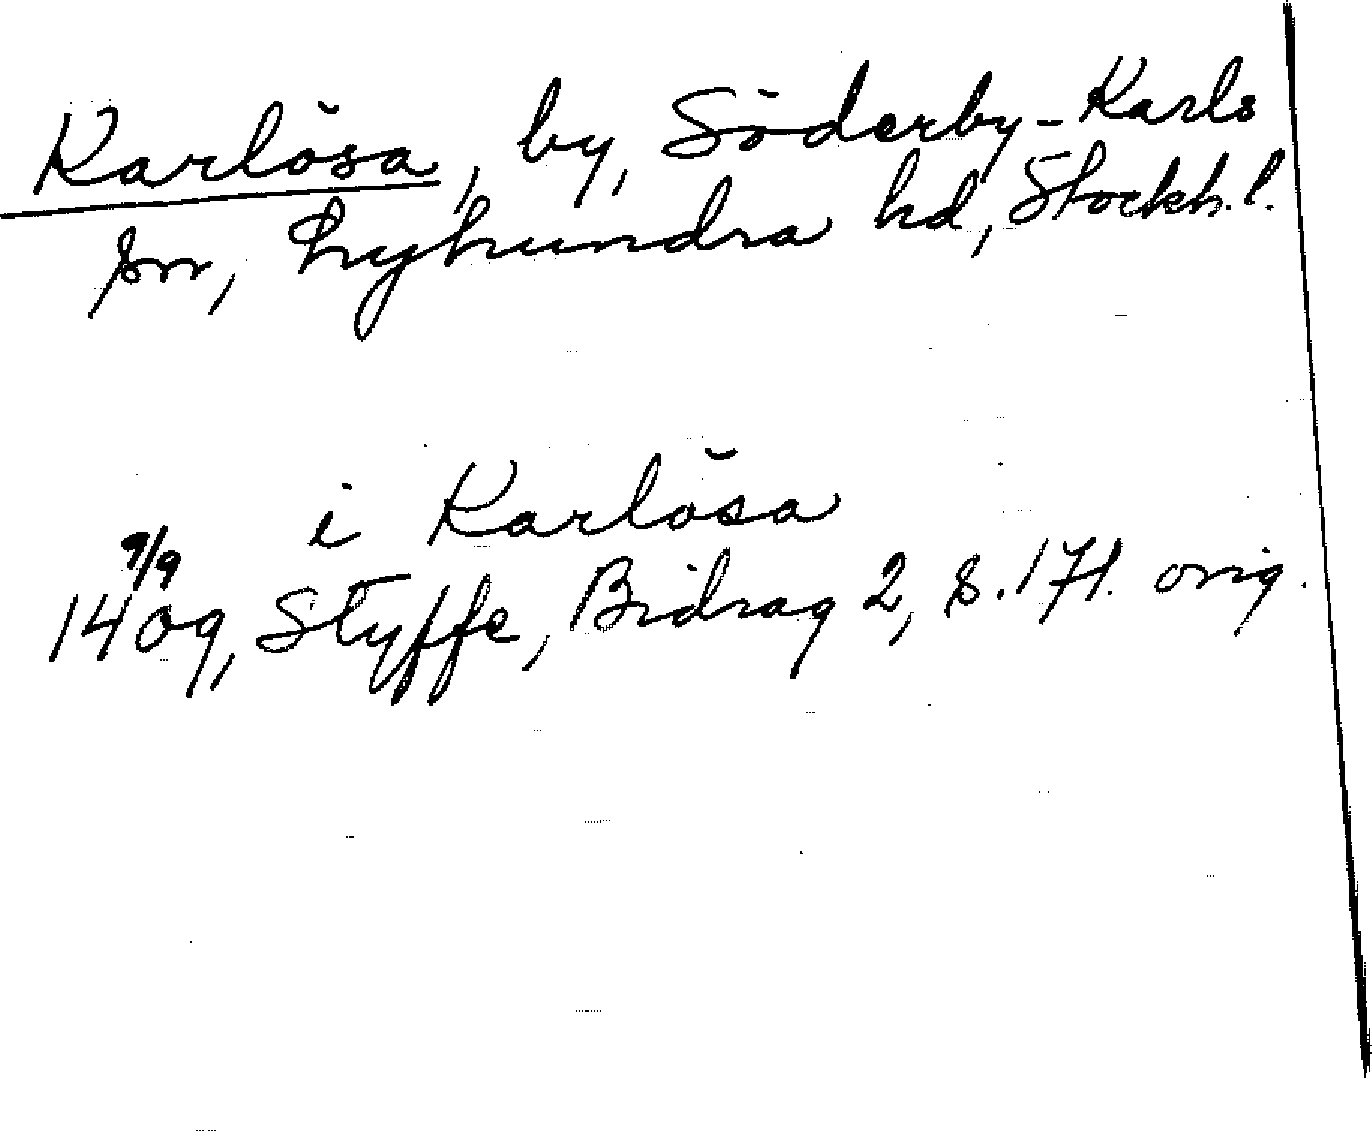 Karlösa, by, Söderby-Karls
sn, Lyhundra hd, Stockh. l.
i Karlösa
9/9
1409, Styffe, Bidrag 2, s. 171. orig.